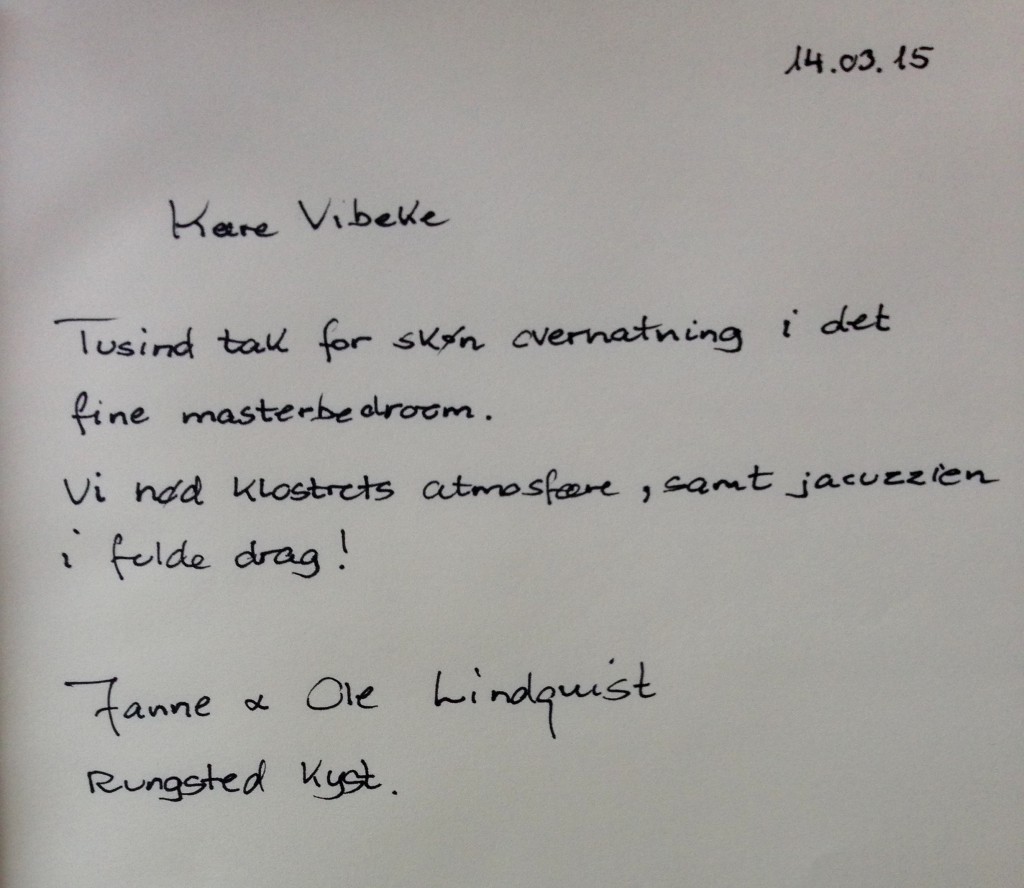 14.03.15
Kære Vibeke
Tusind tak for skøn overnatning i det
fine masterbedroom.
Vi nød klostrets atmosfære, samt jacuzzien
i fulde drag!
Janne & Ole Lindquist
Rungsted Kyst.